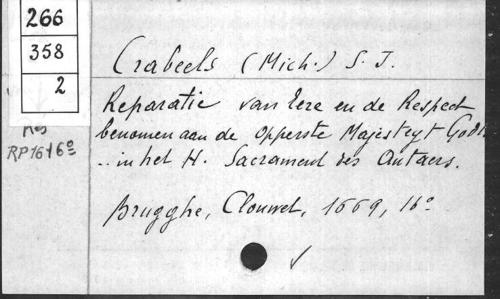 266
358
2
Res
RP16t6º
Crabeels (Mich.) S. J.
Reparatie van Eere en de Respect
benomen aan de opperste Majesteyt Godts
.. in het H. Sacrament des Autaers.
Brugghe, Clouwet, 1669, 16º